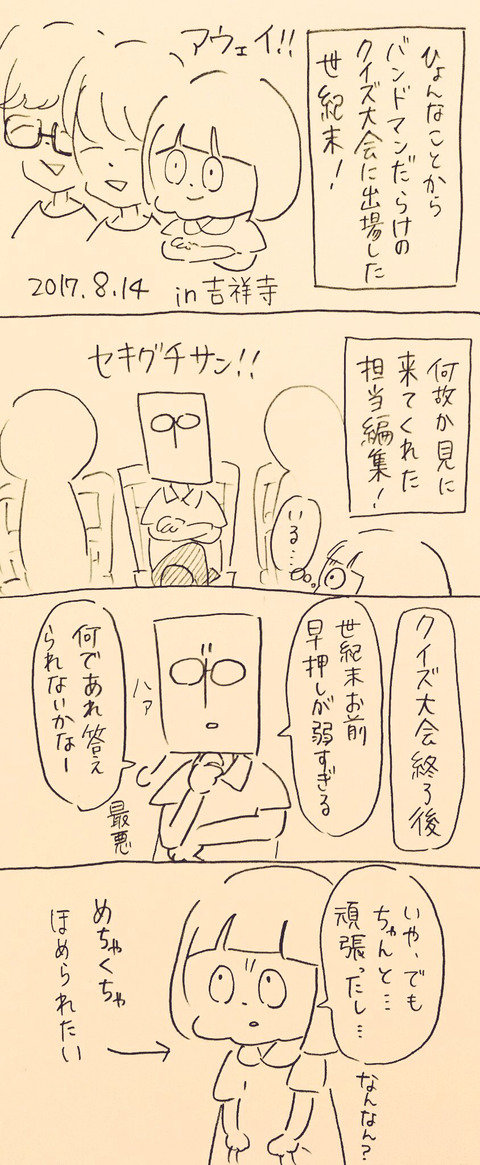 ひょんなことから
バンドマンだらけの
クイズ大会に出場した
世紀末!
アウェイ!!
2017.8.14 in 吉祥寺
何故か見に
来てくれた
担当編集!
セキグチサン!!
いる…
クイズ大会終了後
世紀末お前
早押しが弱すぎる
ハァ
何であれ答え
られないかなー
最悪
いや、でも
ちゃんと…
頑張ったし…
なんなん?
めちゃくちゃ
ほめられたい